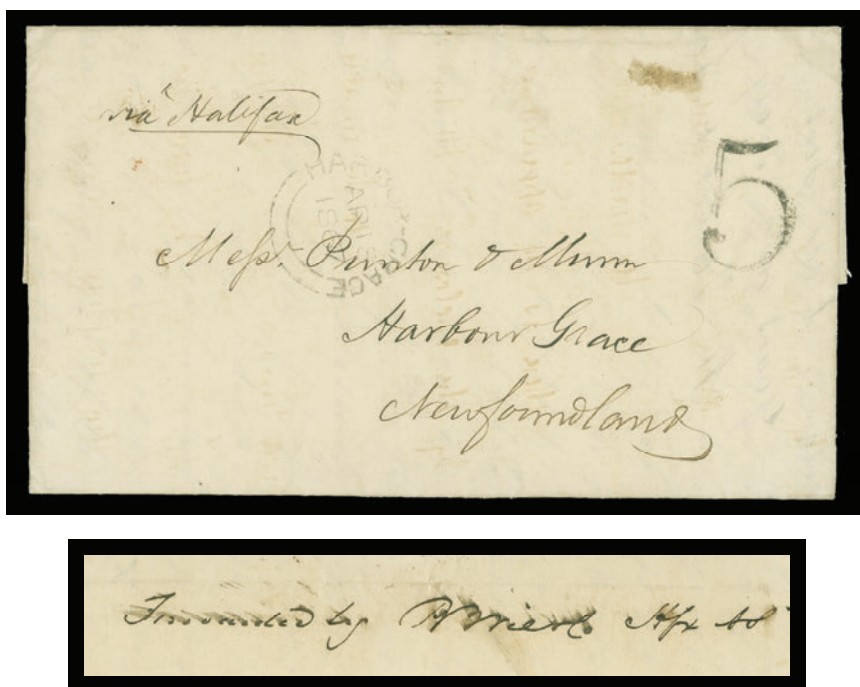 via Halifax
5
HARBOR-GRACE
AP
186
Messrs. Punton & Munn
Harbour Grace
Newfoundland
Forwarded by Hfx